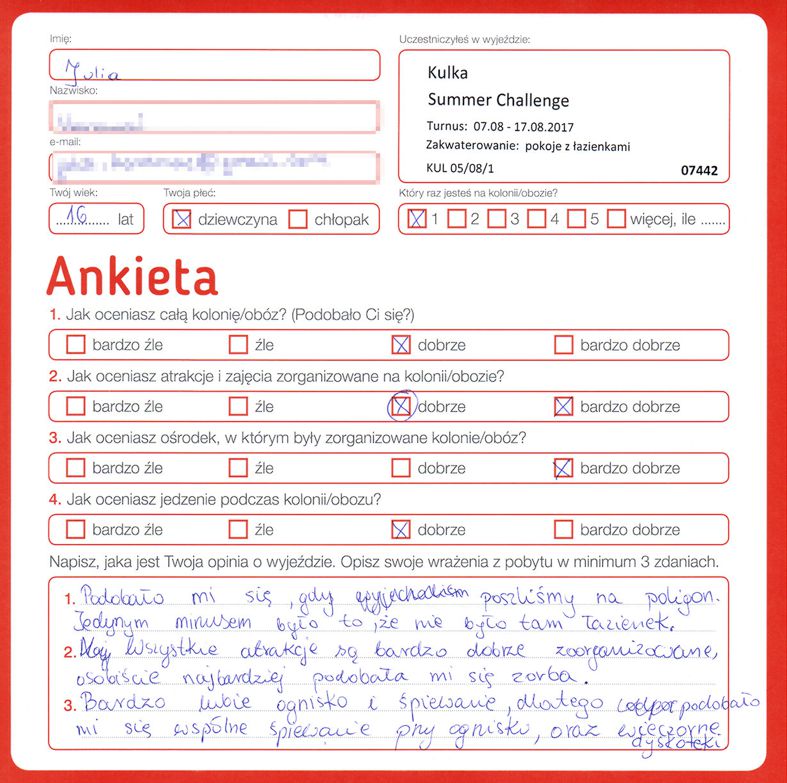 Imię:
Julia
Uczestniczyłeś w wyjeździe:
Kulka
Summer Challenge
Turnus: 07.08 - 17.08.2017
Zakwaterowanie: pokoje z łazienkami
KUL 05/08/1 07442
Nazwisko:
e-mail:
Twój wiek: Twoja płeć: Który raz jesteś na kolonii/obozie?
16 lat dziewczyna chłopak 1 2 3 4 5 więcej, ile .......
Ankieta
1. Jak oceniasz całą kolonię/obóz? (Podobało Ci się?)
bardzo źle źle dobrze bardzo dobrze
2. Jak oceniasz atrakcje i zajęcia zorganizowane na kolonii/obozie?
bardzo źle źle dobrze bardzo dobrze
3. Jak oceniasz ośrodek, w którym były zorganizowane kolonie/obóz?
bardzo źle źle dobrze bardzo dobrze
4. Jak oceniasz jedzenie podczas kolonii/obozu?
bardzo źle źle dobrze bardzo dobrze
Napisz, jaka jest Twoja opinia o wyjeździe. Opisz swoje wrażenia z pobytu w minimum 3 zdaniach.
1. Podobało mi się, gdy poszliśmy na poligon.
Jedynym minusem było to, że nie było tam łazienek.
2. Wszystkie atrakcje są bardzo dobrze zoorganizowane,
osobiście najbardziej podobała mi się zorba.
3. Bardzo lubie ognisko i śpiewanie, dlatego podobało
mi się wspólne śpiewanie przy ognisku, oraz wieczorne
dyskoteki